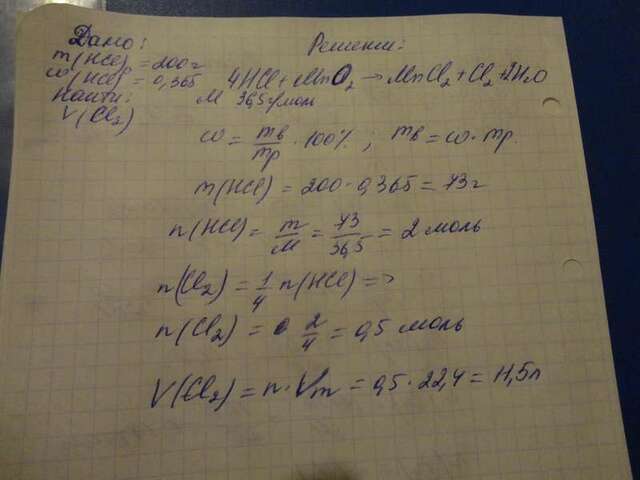 Дано:
m(HCl)р = 200г
ω(HCl) = 0,365
Найти:
V(Cl₂)
Решение:
4HCl + MnO₂ → MnCl₂ + Cl₂ + 2H₂O
M 36,5 г/моль
ω = mв/mр · 100% ; mв = ω · mр
m(HCl) = 200 · 0,365 = 73г
n(HCl) = m/M = 73/36,5 = 2 моль
n(Cl₂) = 1/4 n(HCl) =>
n(Cl₂) = 2/4 = 0,5 моль
V(Cl₂) = n · Vm = 0,5 · 22,4 = 11,5л